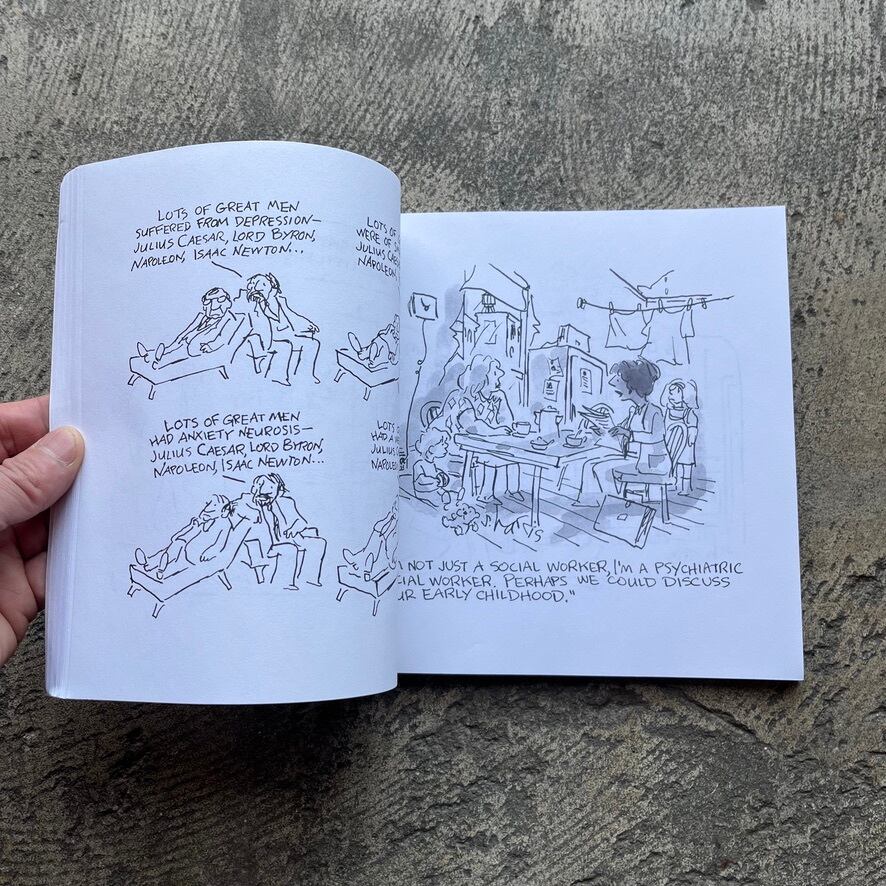 LOTS OF GREAT MEN
SUFFERED FROM DEPRESSION—
JULIUS CAESAR, LORD BYRON,
NAPOLEON, ISAAC NEWTON...
LOTS OF
WERE OF
JULIUS
NAPOLEON
LOTS OF GREAT MEN
HAD ANXIETY NEUROSIS—
JULIUS CAESAR, LORD BYRON,
NAPOLEON, ISAAC NEWTON...
LOTS
HAD A
JULIUS
NAPOLEO
NOT JUST A SOCIAL WORKER, I'M A PSYCHIATRIC
CIAL WORKER. PERHAPS WE COULD DISCUSS
UR EARLY CHILDHOOD."